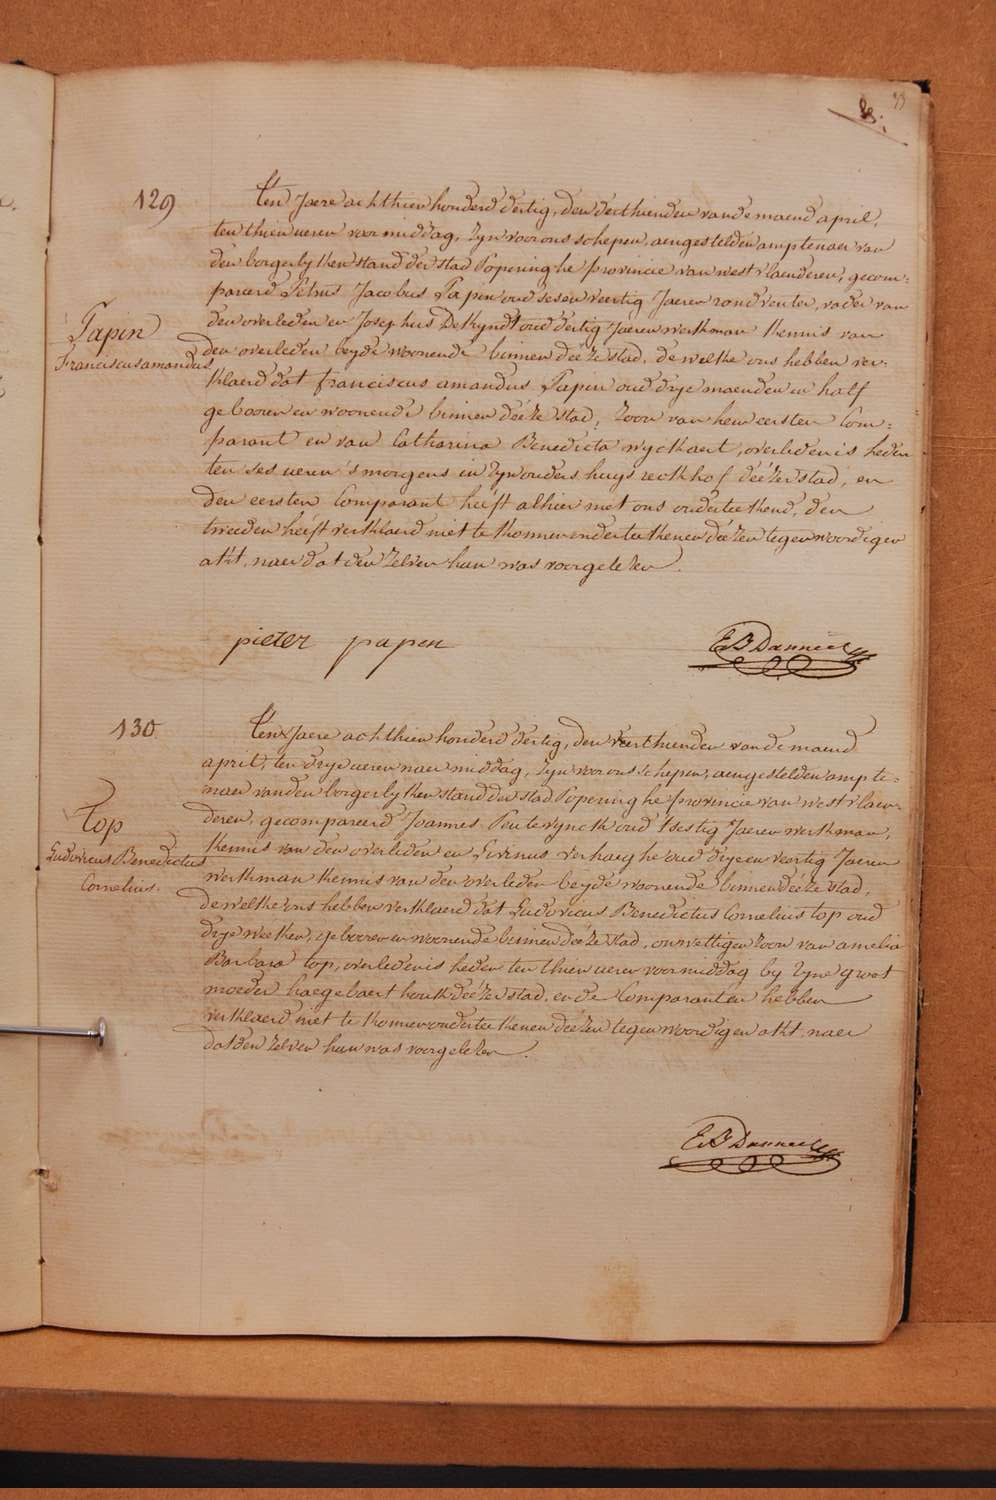 33
129
Ten Jaere achthien honderd dertig, den derthienden van de maend april,
ten thien ueren voormiddag, zyn voor ons schepen, aengestelden amptenaer van
den borgerlyken stand der stad Poperinghe provincie van westvlaenderen, gecom-
pareerd Petrus Jacobus Papen oud sesenveertig Jaeren rondventer, vader van
den overleden en Josephus DeKyndt oud dertig Jaeren werkman kennis van
Papin
Franciscus amandus
den overleden beyde woonende binnen deéze stad, de welke ons hebben ver-
klaerd dat franciscus amandus Papen oud drye maenden en half
gebooren en woonende binnen deéze stad, zoon van hem eersten Com-
parant en van Catharina Benedicta wyckaert, overleden is heden
ten ses ueren 's morgens in zyn ouders huys deézer stad, en
den eersten Comparant heéft alhier met ons onderteekend, den
tweeden heéft verklaerd niet te konnen onderteekenen deézen tegenwoordigen
akt, naer dat den zelven hun was voorgelezen.
pieter papen
E B Danneel
130
Ten Jaere achthien honderd dertig, den veerthienden van de maend
april, ten drye ueren naer middag, zyn voor ons schepen, aengestelden ampte-
naer van den borgerlyken stand der stad Poperinghe provincie van westvlaen-
deren, gecompareerd Joannes Peutevynck oud tsestig Jaeren werkman,
top
Ludovicus Benedictus
Cornelius.
kennis van den overleden en Livinus verhaeghe oud drye en veertig Jaeren
werkman kennis van den overleden beyde woonende binnen deéze stad,
de welke ons hebben verklaerd dat Ludovicus Benedictus Cornelius top oud
drye weeken, gebooren en woonende binnen deéze stad, onwettigen zoon van amelia
Barbara top, overleden is heden ten thien ueren voormiddag by zyne groot
moeder haegebaert houk deézer stad, en de Comparanten hebben
verklaerd niet te konnen onderteekenen deézen tegenwoordigen akt, naer
dat den zelven hun was voorgelezen.
E B Danneel